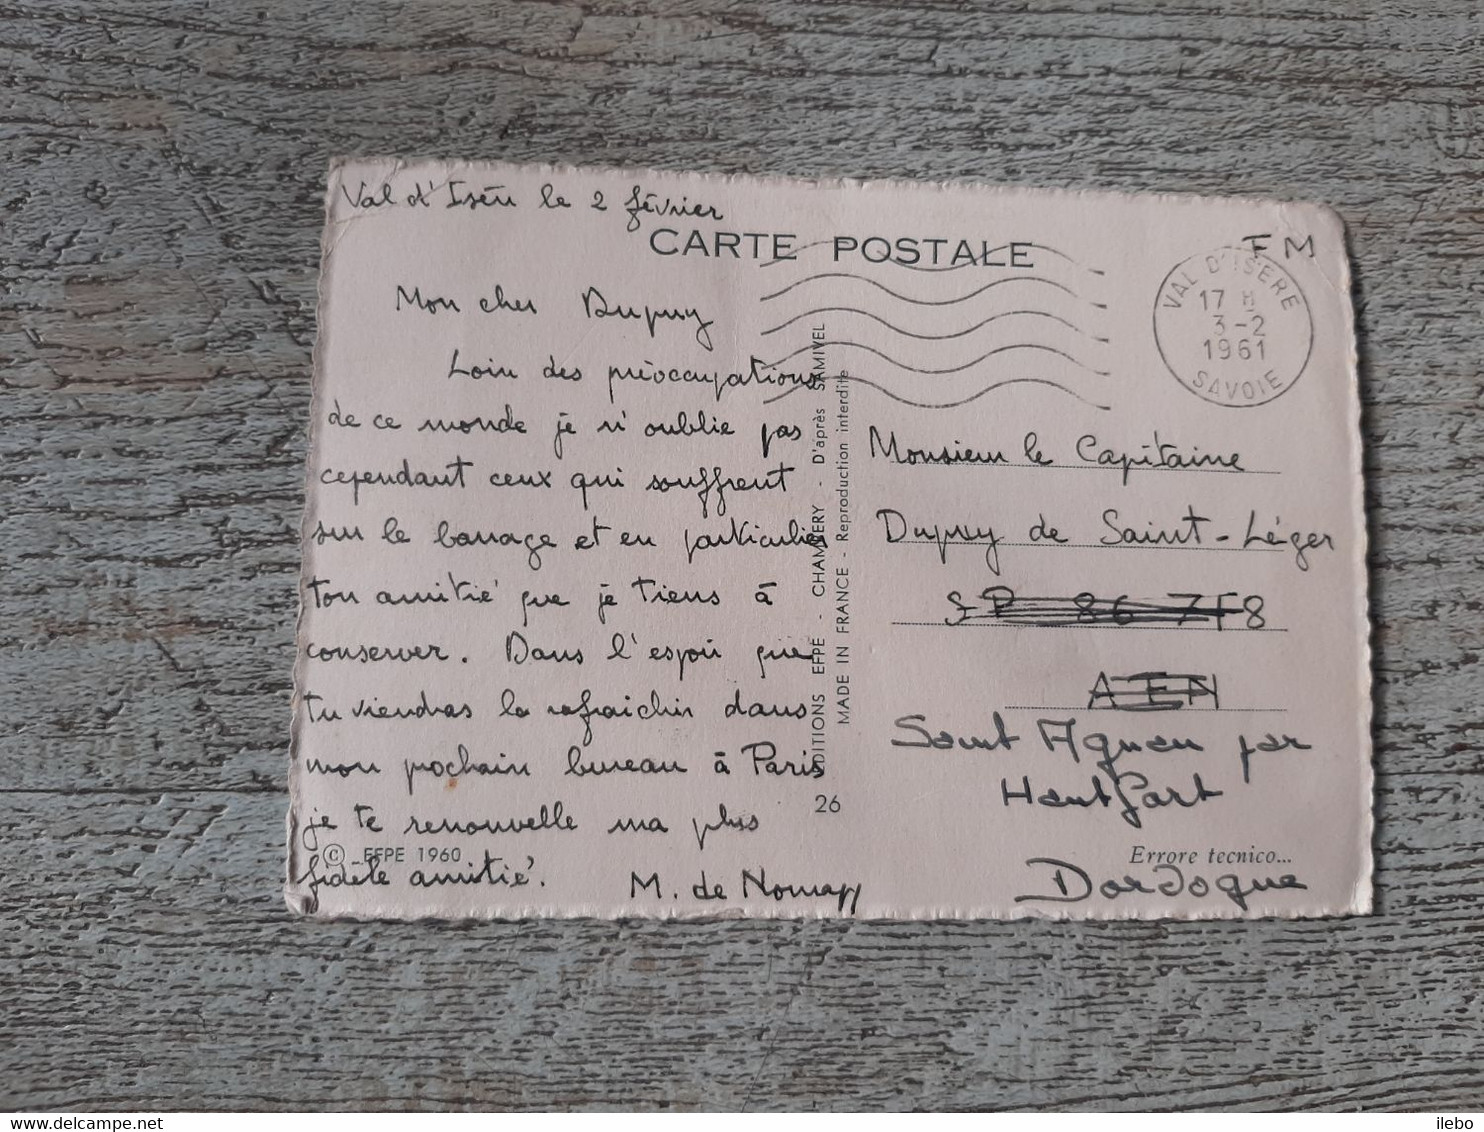 Val d'Isère le 2 février
CARTE POSTALE
F M
VAL D'ISERE
17 H
3-2
1961
SAVOIE
Mon cher Dupuy
Loin des préoccupations
de ce monde je n'oublie pas
cependant ceux qui souffrent
sur le barrage et en particulier
ton amitié que je tiens à
conserver. Dans l'espoir que
tu viendras la rafraichir dans
mon prochain bureau à Paris
je te renouvelle ma plus
fidèle amitié.
M. de
© EFPE 1960
EDITIONS EFPÉ - CHAMBERY - D'après SAMIVEL
MADE IN FRANCE - Reproduction interdite
26
Monsieur le Capitaine
Dupuy de Saint-Léger
SP 86 718
AFN
Saint Agnan par
Hautefort
Errore tecnico...
Dordogne
ilebo